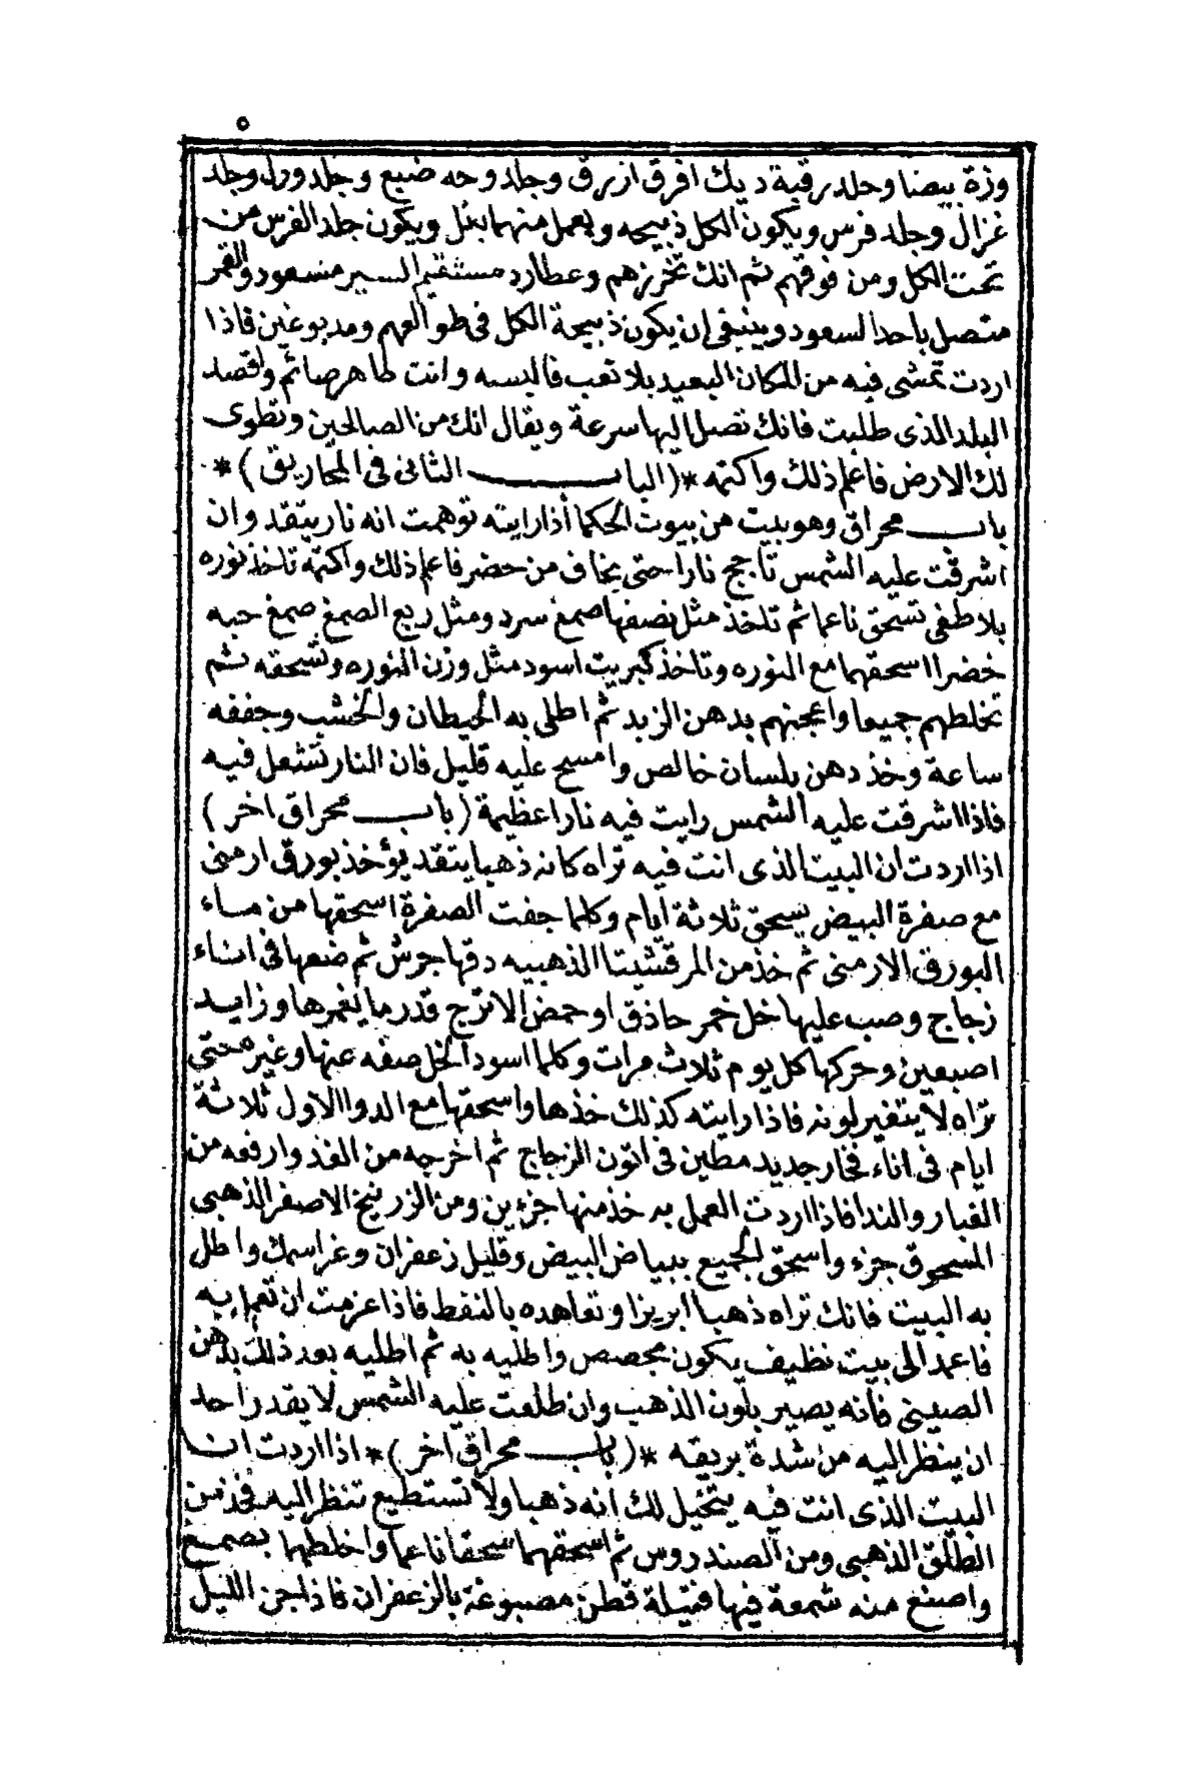 ٥
وزة بيضا وجلد رقبة ديك افرق ازرق وجلد وجه ضبع وجلد ورل وجلد
غزال وجلد فرس ويكون الكل ذبيحه ويعمل منهما بغل ويكون جلد الفرس من
تحت الكل ومن فوقهم ثم انك تخرزهم وعطارد مستقيم السير مسعود والقمر
متصل باحد السعود وينبغى ان يكون ذبيحة الكل فى طوالعهم ومدبوغين فاذا
اردت تمشى فيه من المكان البعيد بلا تعب فالبسه وانت طاهر صائم واقصد
البلد الذى طلبت فانك تصل اليها سرعة ويقال انك من الصالحين وتطوى
لك الارض فاعلم ذلك واكتمه *(الباب الثانى فى المحاريق)*
باب محراق وهو بيت من بيوت الحكما أذا رايته توهمت انه نار يتقد وان
اشرقت عليه الشمس تاجج نارا حتى يخاف من حضر فاعلم ذلك واكتمه تاخذ نوره
بلا طفى تسحق ناعما ثم تاخذ مثل نصفها صمغ سرد ومثل ربع الصمغ صمغ حبه
خضرا اسحقهما مع النوره وتاخذ كبريت اسود مثل وزن النوره وتسحقه ثم
تخلطهم جميعا واعجنهم بدهن الزبد ثم اطلى به الحيطان والخشب وجففه
ساعة وخذ دهن بلسان خالص وامسح عليه قليل فان النار تشتعل فيه
فاذا اشرقت عليه الشمس رايت فيه نارا عظيمة (باب محراق اخر)
اذا اردت ان البيت الذى انت فيه تراه كانه ذهبا يتقد يؤخذ بورق ارمنى
مع صفرة البيض يسحق ثلاثة ايام وكلما جفت الصفرة اسحقها من ماء
البورق الارمنى ثم خذ من المرقشيتا الذهبيه دقها جرش ثم ضعها فى اناء
زجاج وصب عليها خل خمر حاذق او حمض الاترج قدر ما يغمرها وزايد
اصبعين وحركها كل يوم ثلاث مرات وكلما اسود الخل صفه عنها وغيره حتى
تراه لا يتغير لونه فاذا رايته كذلك خذها واسحقها مع الدوا الاول ثلاثة
ايام فى اناء فخار جديد مطين فى اتون الزجاج ثم اخرجه من الغد وارفعه من
الغبار والندا فاذا اردت العمل به خذ منها جزءين ومن الزرنيخ الاصفر الذهبى
المسحوق جزء واسحق الجميع ببياض البيض وقليل زعفران وغرا سمك واطل
به البيت فانك تراه ذهبا ابريزا وتعاهده بالنفط فاذا عزمت ان تعمل به
فاعمد الى بيت نظيف يكون مجصص واطليه به ثم اطليه بعد ذلك بدهن
الصينى فانه يصير بلون الذهب وان طلعت عليه الشمس لا يقدر احد
ان ينظر اليه من شدة بريقه *(باب محراق اخر)* اذا اردت ان
البيت الذى انت فيه يتخيل لك انه ذهبا ولا تستطيع تنظر اليه فخذ من
الطلق الذهبى ومن الصندروس ثم اسحقهما سحقا ناعما واخلطهما بصمغ
واصنع منه شمعة فيها فتيلة قطن مصبوغة بالزعفران فاذا جن الليل